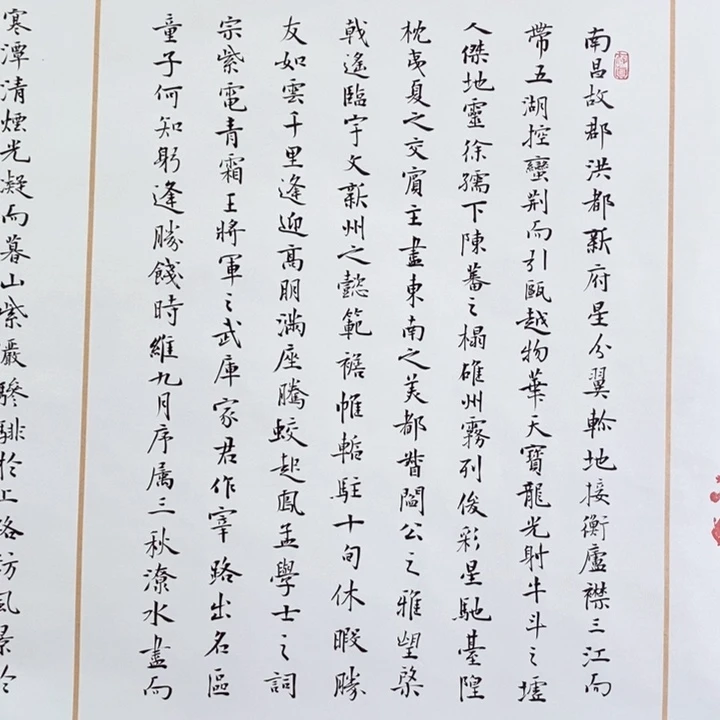 南昌故郡洪都新府星分翼軫地接衡廬襟三江而
帶五湖控蠻荊而引甌越物華天寶龍光射牛斗之墟
人傑地靈徐孺下陳蕃之榻雄州霧列俊彩星馳臺隍
枕夷夏之交賓主盡東南之美都督閻公之雅望棨
戟遙臨宇文新州之懿範襜帷暫駐十旬休暇勝
友如雲千里逢迎高朋滿座騰蛟起鳳孟學士之詞
宗紫電青霜王將軍之武庫家君作宰路出名區
童子何知躬逢勝餞時維九月序属三秋潦水盡而
寒潭清煙光凝而暮山紫儼驂騑於上路訪風景於